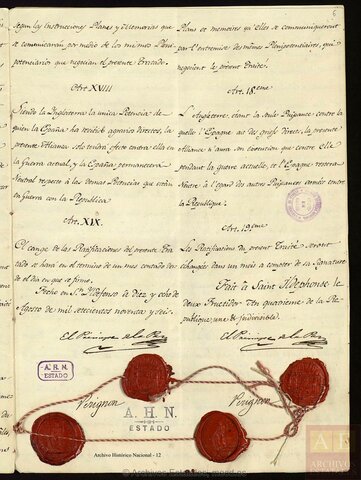 segun las Instrucciones Planes y Memorias que
se comunicaràn por medio de los mismos Pleni
potenciarios que negocian el presente Tratado.
Art. XVIII
Siendo la Inglaterra la unica Potencia de
quien la España ha recibido agravios directos, la
presente Alianza solo tendrá efecto contra ella en
la Guerra actual, y la España permanecerá
Neutral respecto à las demas Potencias que están
en Guerra con la Republica.
Art. XIX.
El cange de las Ratificaciones del presente Tra
tado se hará en el termino de un mes contado des
de el dia en que se firme.
Fecho en Sn. Ildefonso à diez y ocho de
Agosto de mil setecientos noventa y seis.
El Principe de la Paz
Perignon
Plans et memoires qu'elles se communiqueront
par l'entremise des mêmes Plenipotentiaires, qui
négocient le présent Traité.
Art. 18eme
L'Angleterre, étant la seule Puissance contre
la quelle l'Espagne ait des griefs directs, la presente
Alliance n'aura son execution que contre Elle
pendant la guerre actuelle, et l'Espagne restera
Neutre à l'egard des autres Puissances armées contre
la Republique.
Art. 19eme
Les Ratifications du present Traité seront
échangées dans un mois à compter de sa Signature
Fait à Saint Ildephonse le
deux Fructidor An quatrieme de la Re
publique, une & indivisible.
El Principe de la Paz
Perignon
A.H.N.
ESTADO
A.H.N.
ESTADO
Archivo Histórico Nacional - 12